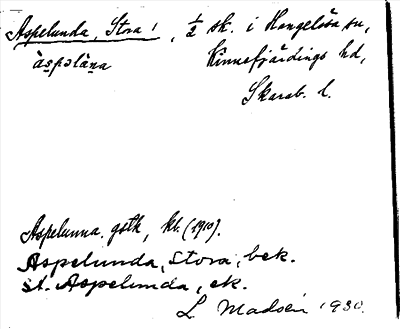 Aspelunda, Stora!, ½ sk. i Hangelösa sn,
àspəlùna Kinnefjärdings hd,
Skarab. l.
Aspelunna. gstk, kl. (1910).
Aspelunda, Stora, bek.
St. Aspelunda, ek.
L. Madsén 1930.